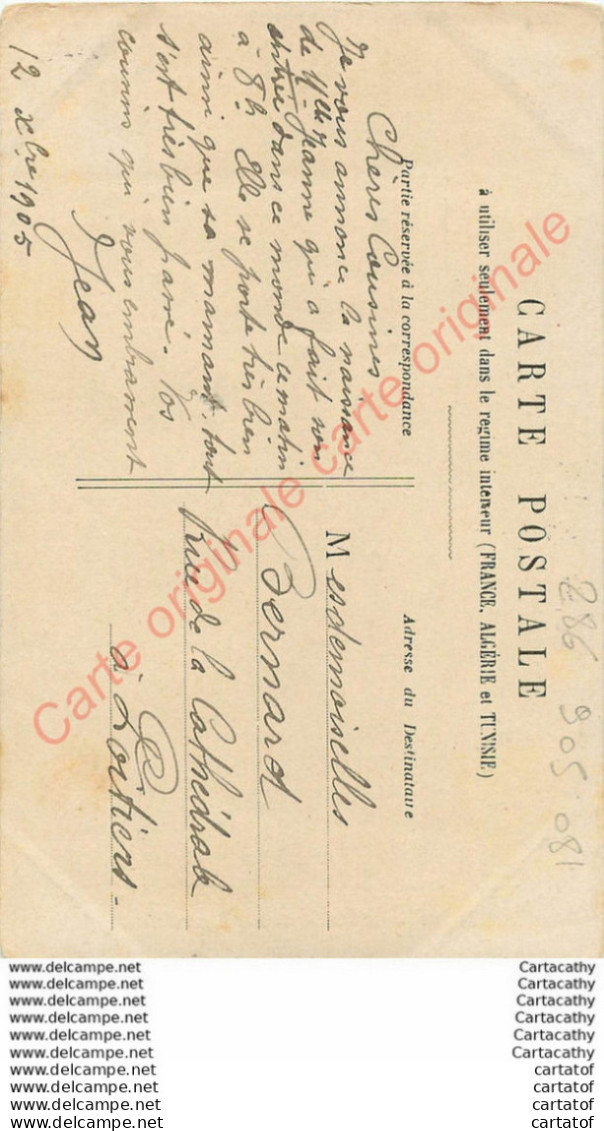 CARTE POSTALE
à utiliser seulement dans le régime intérieur (FRANCE, ALGÉRIE et TUNISIE)
Partie réservée à la correspondance
Chères Cousines
Je vous annonce la naissance
de Mlle Jeanne qui a fait son
entrée dans ce monde ce matin
à 8h. Elle se porte très bien
ainsi que sa maman, tout
s'est très bien passé. Vos
cousins qui vous embrassent
Jean
12 Xbre 1905
Adresse du Destinataire
Mesdemoiselles
Bernard
Rue de la Cathédrale
à Poitiers -
286 905 081
Carte originale carte originale carte originale
www.delcampe.net Cartacathy
www.delcampe.net Cartacathy
www.delcampe.net Cartacathy
www.delcampe.net Cartacathy
www.delcampe.net Cartacathy
www.delcampe.net Cartacathy
www.delcampe.net cartatof
www.delcampe.net cartatof
www.delcampe.net cartatof
www.delcampe.net cartatof